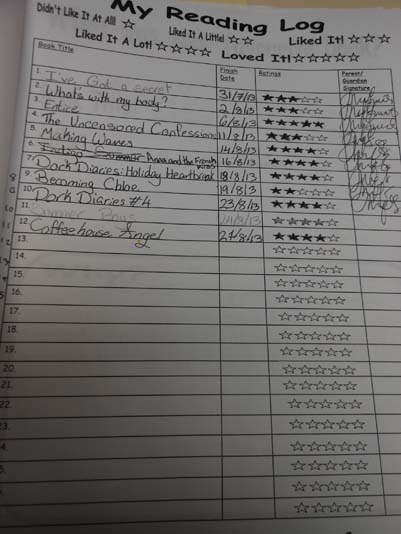 My Reading Log
Didn't Like It At All! ☆ Liked It A Little! ☆☆ Liked It! ☆☆☆
Liked It A Lot! ☆☆☆☆ Loved It! ☆☆☆☆☆
Book Title Finish Date Ratings Parent/Guardian Signature
1. I've Got a secret 31/7/13 ★★★☆☆
2. What's with my body? 2/8/13 ★★★☆☆
3. Entice 6/8/13 ★★★★★
4. The Uncensored Confessions 11/8/13 ★★★☆☆
5. Making Waves 14/8/13 ★★★★☆
6. Anna and the French 16/8/13 ★★★★☆
7. Dork Diaries: Holiday Heartbreak 18/8/13 ★★★★☆
9. Becoming Chloe 19/8/13 ★★☆☆☆
10. Dork Diaries #4 23/8/13 ★★★★☆
11. Summer Boys
12. Coffeehouse Angel 27/8/13 ★★★★☆
13. ☆☆☆☆☆
14. ☆☆☆☆☆
15. ☆☆☆☆☆
16. ☆☆☆☆☆
17. ☆☆☆☆☆
18. ☆☆☆☆☆
19. ☆☆☆☆☆
20. ☆☆☆☆☆
21. ☆☆☆☆☆
22. ☆☆☆☆☆
23. ☆☆☆☆☆
☆☆☆☆☆
☆☆☆☆☆
☆☆☆☆☆
☆☆☆☆☆